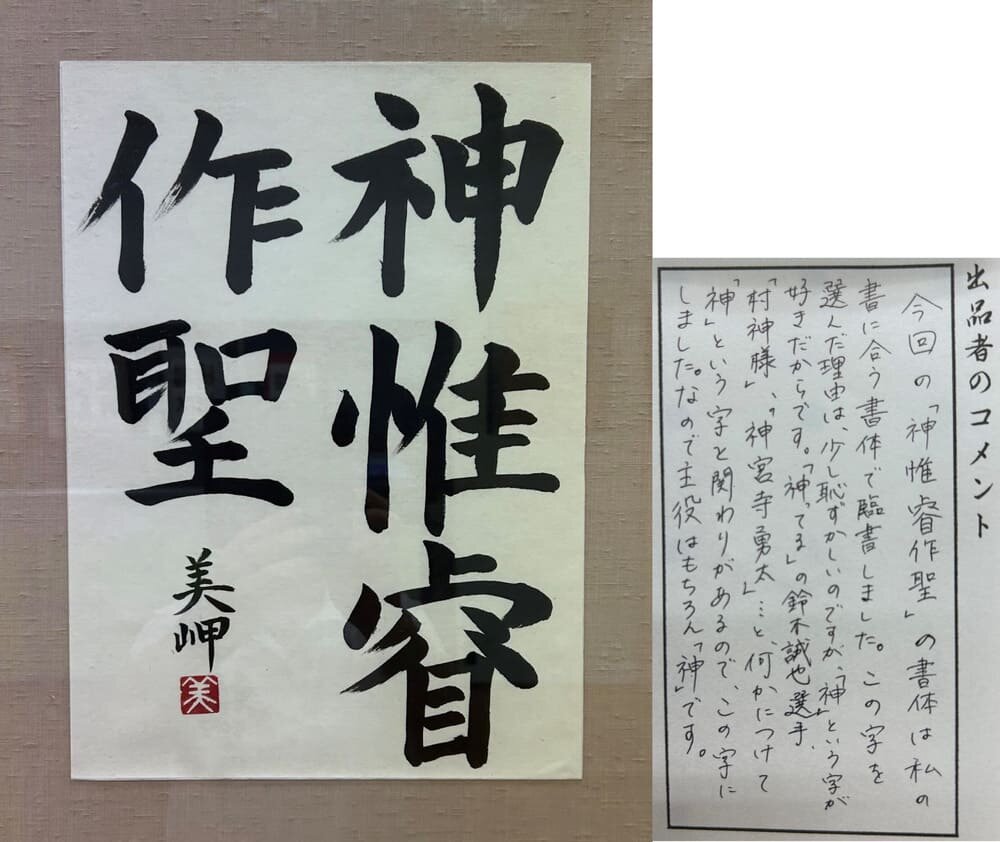 神惟睿
作聖
美岬
美
出品者のコメント
今回の「神惟睿作聖」の書体は私の
書に合う書体で臨書しました。この字を
選んだ理由は、少し恥ずかしいのですが、「神」という字が
好きだからです。「神ってる」の鈴木誠也選手、
「村神様」、"神宮寺勇太"…と、何かにつけて
「神」という字と関わりがあるので、この字に
しました。なので主役はもちろん「神」です。